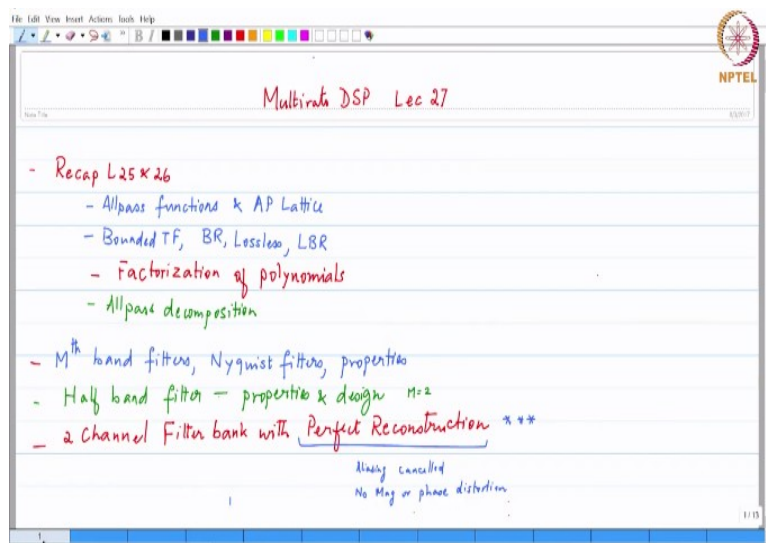 File Edit View Insert Actions Tools Help
B I
NPTEL
Multirate DSP Lec 27
Note Title
- Recap L25 & 26
- Allpass functions & AP Lattice
- Bounded TF, BR, Lossless, LBR
- Factorization of polynomials
- Allpass decomposition
- Mth band filters, Nyquist filters, properties
- Half band filter - properties & design M=2
- 2 Channel Filter bank with Perfect Reconstruction ***
Aliasing cancelled
No Mag or phase distortion
1/15
1